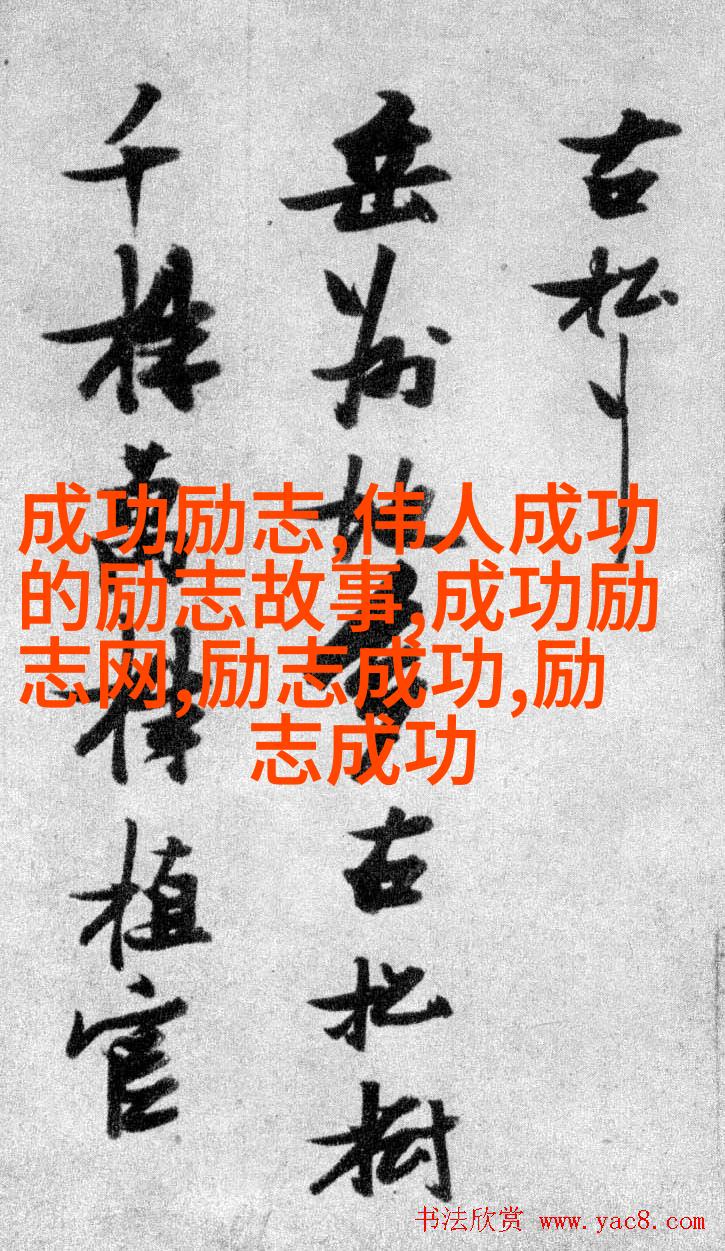 古松
岳州地多古松樹
千株萬株植官
成功励志,伟人成功
的励志故事,成功励
志网,励志成功,励
志成功
书法欣赏 www.yac8.com